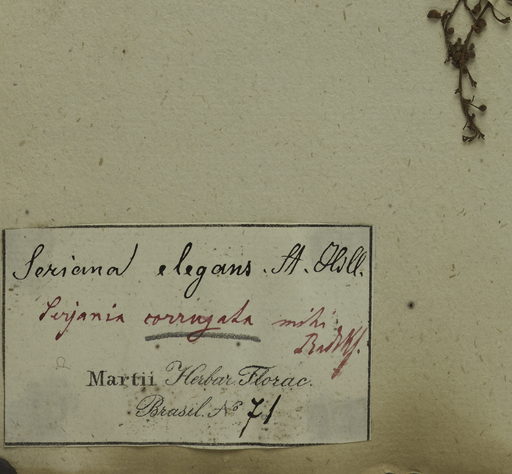 Seriana elegans. St. Hill.
Serjania corrugata mihi
Radlkf.
Martii Herbar. Florac.
Brasil. No 71